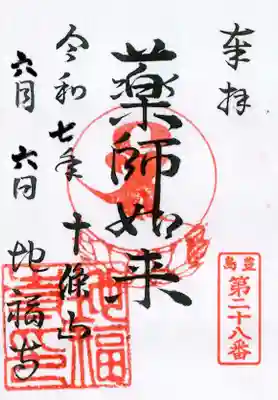 奉拝
豊島
第二十八番
薬師如来
十條山
地福寺
令和七年
六月六日